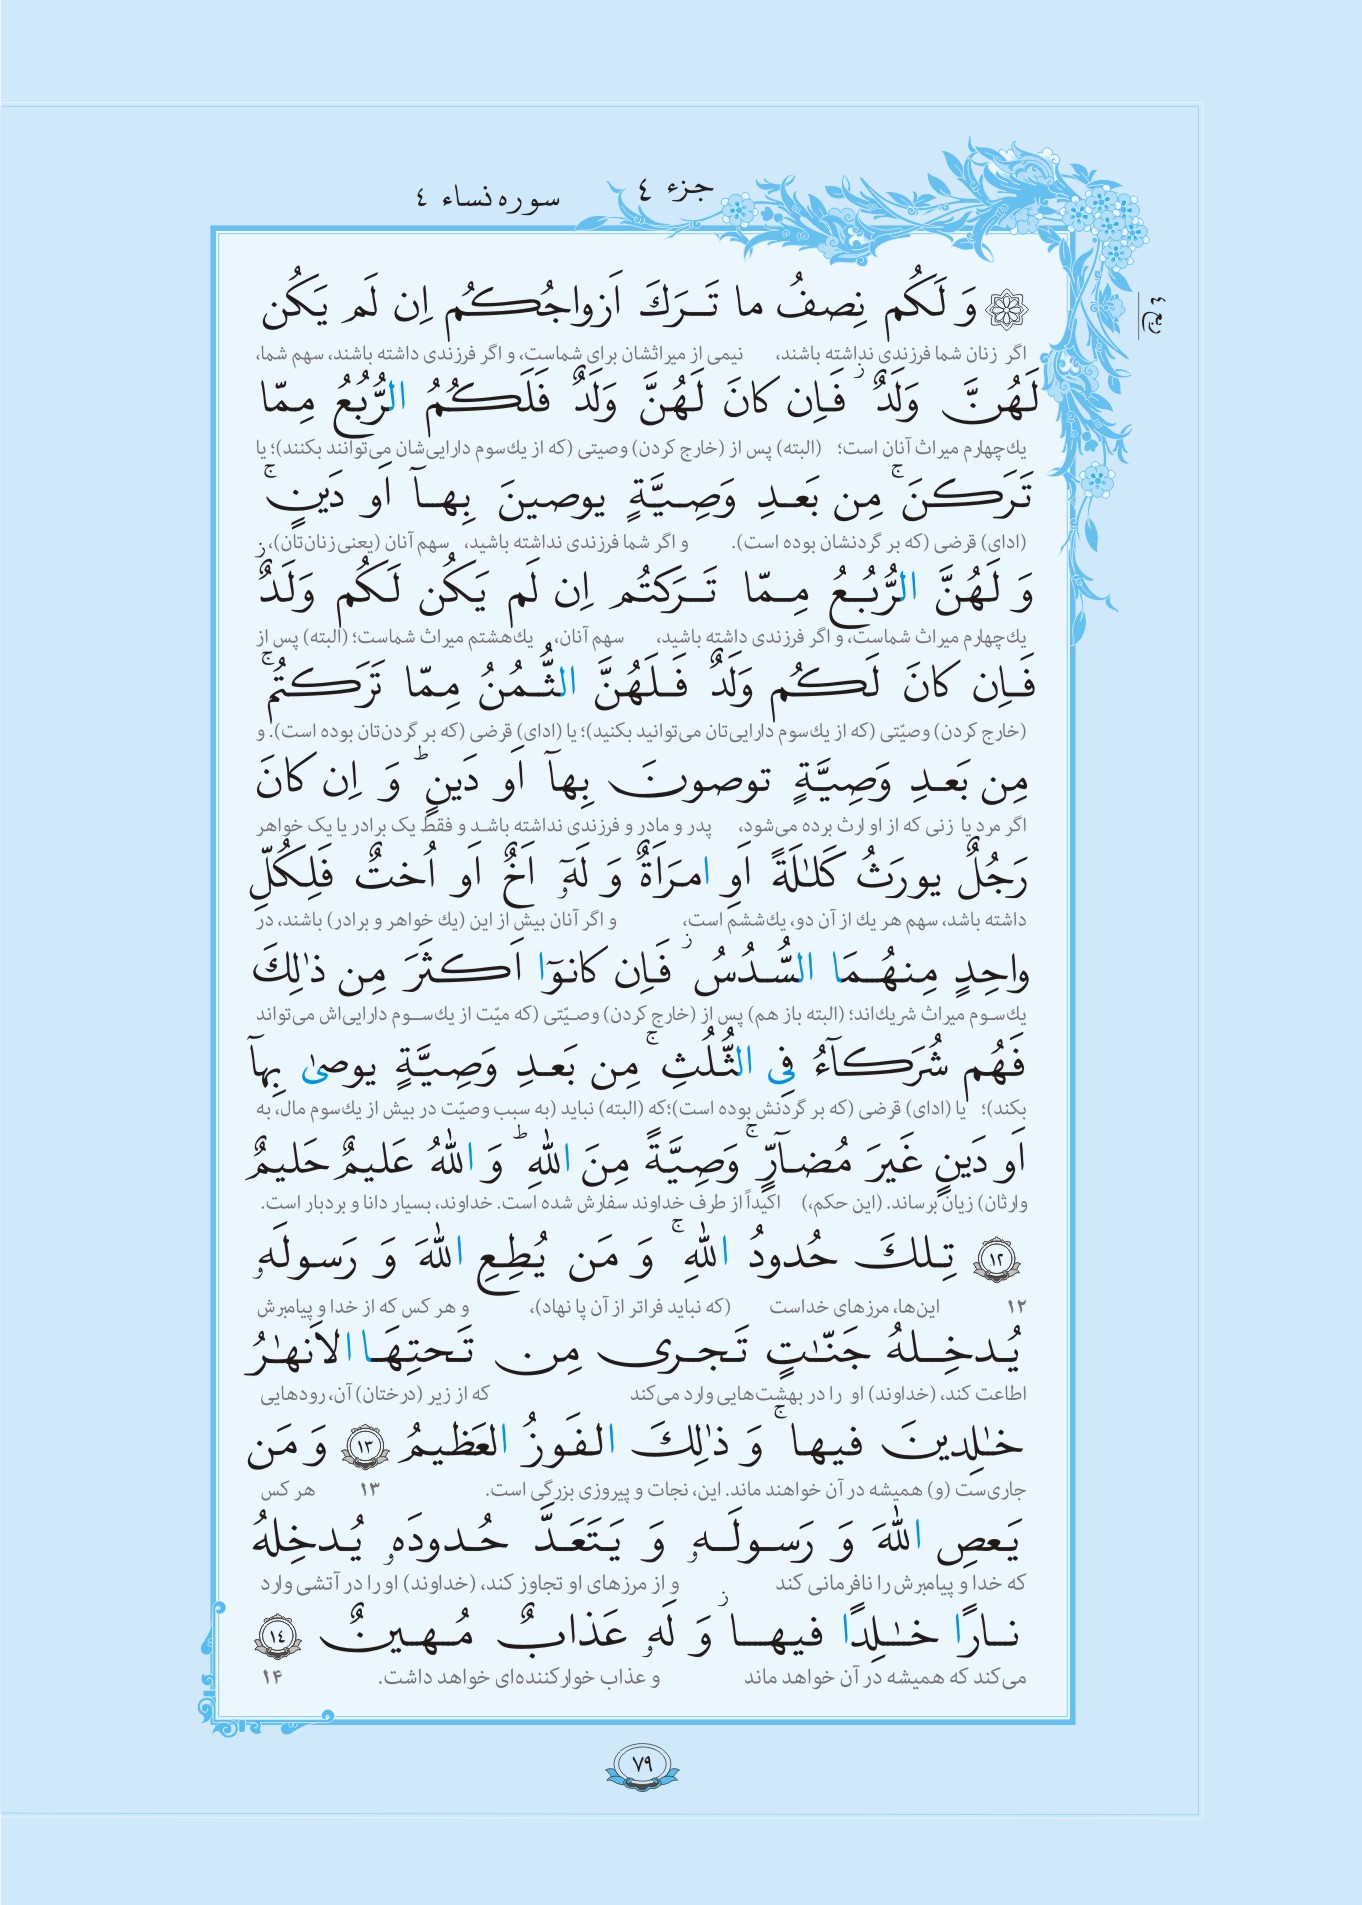 جزء ٤
سوره نساء ٤
ربع ٤
وَ لَكُم نِصفُ ما تَرَكَ اَزواجُكُم اِن لَم يَكُن
اگر زنان شما فرزندی نداشته باشند، نیمی از میراثشان برای شماست، و اگر فرزندی داشته باشند، سهم شما،
لَهُنَّ وَلَدٌ ۚ فَاِن كانَ لَهُنَّ وَلَدٌ فَلَكُمُ الرُّبُعُ مِمّا
یك‌چهارم میراث آنان است؛ (البته) پس از (خارج کردن) وصیتی (که از یك‌سوم دارایی‌شان می‌توانند بکنند)؛ یا
تَرَكنَ ۚ مِن بَعدِ وَصِيَّةٍ يوصينَ بِهآ اَو دَينٍ ۚ
(ادای) قرضی (که بر گردنشان بوده است). و اگر شما فرزندی نداشته باشید، سهم آنان (یعنی زنان‌تان)،
وَ لَهُنَّ الرُّبُعُ مِمّا تَرَكتُم اِن لَم يَكُن لَكُم وَلَدٌ ز
یك‌چهارم میراث شماست، و اگر فرزندی داشته باشید، سهم آنان، یك‌هشتم میراث شماست؛ (البته) پس از
فَاِن كانَ لَكُم وَلَدٌ فَلَهُنَّ الثُّمُنُ مِمّا تَرَكتُم ۚ
(خارج کردن) وصیّتی (که از یك‌سوم دارایی‌تان می‌توانید بکنید)؛ یا (ادای) قرضی (که بر گردن‌تان بوده است). و
مِن بَعدِ وَصِيَّةٍ توصونَ بِهآ اَو دَينٍ ؕ وَ اِن كانَ
اگر مرد یا زنی که از او ارث برده می‌شود، پدر و مادر و فرزندی نداشته باشد و فقط یک برادر یا یک خواهر
رَجُلٌ يورَثُ كَلـٰلَةً اَوِ امرَاَةٌ وَ لَهٗٓ اَخٌ اَو اُختٌ فَلِكُلِّ
داشته باشد، سهم هر یك از آن دو، یك‌ششم است، و اگر آنان بیش از این (یك خواهر و برادر) باشند، در
واحِدٍ مِنهُمَا السُّدُسُ ز فَاِن كانوٓا اَكثَرَ مِن ذٰلِكَ
یك‌سوم میراث شریك‌اند؛ (البته باز هم) پس از (خارج کردن) وصیّتی (که میّت از یك‌سوم دارایی‌اش می‌تواند
فَهُم شُرَكآءُ فِى الثُّلُثِ ۚ مِن بَعدِ وَصِيَّةٍ يوصىٰ بِهآ
بکند)؛ یا (ادای) قرضی (که بر گردنش بوده است)؛که (البته) نباید (به سبب وصیّت در بیش از یك‌سوم مال، به
اَو دَينٍ غَيرَ مُضآرٍّ ۚ وَصِيَّةً مِنَ اللّٰهِ ؕ وَ اللّٰهُ عَليمٌ حَليمٌ
وارثان) زیان برساند. (این حکم،) اکیداً از طرف خداوند سفارش شده است. خداوند، بسیار دانا و بردبار است.
١٢ تِلكَ حُدودُ اللّٰهِ ۚ وَ مَن يُطِعِ اللّٰهَ وَ رَسولَهٗ
۱۲ این‌ها، مرزهای خداست (که نباید فراتر از آن پا نهاد)، و هر کس که از خدا و پیامبرش
يُدخِلهُ جَنّـٰتٍ تَجرى مِن تَحتِهَا الاَنهـٰرُ
اطاعت کند، (خداوند) او را در بهشت‌هایی وارد می‌کند که از زیر (درختان) آن، رودهایی
خـٰلِدينَ فيها ۚ وَ ذٰلِكَ الفَوزُ العَظيمُ ١٣ وَ مَن
جاری‌ست (و) همیشه در آن خواهند ماند. این، نجات و پیروزی بزرگی است. ۱۳ هر کس
يَعصِ اللّٰهَ وَ رَسولَهٗ وَ يَتَعَدَّ حُدودَهٗ يُدخِلهُ
که خدا و پیامبرش را نافرمانی کند و از مرزهای او تجاوز کند، (خداوند) او را در آتشی وارد
نارًا خـٰلِدًا فيها ز وَ لَهٗ عَذابٌ مُهينٌ ١٤
می‌کند که همیشه در آن خواهد ماند و عذاب خوارکننده‌ای خواهد داشت. ۱۴
٧٩